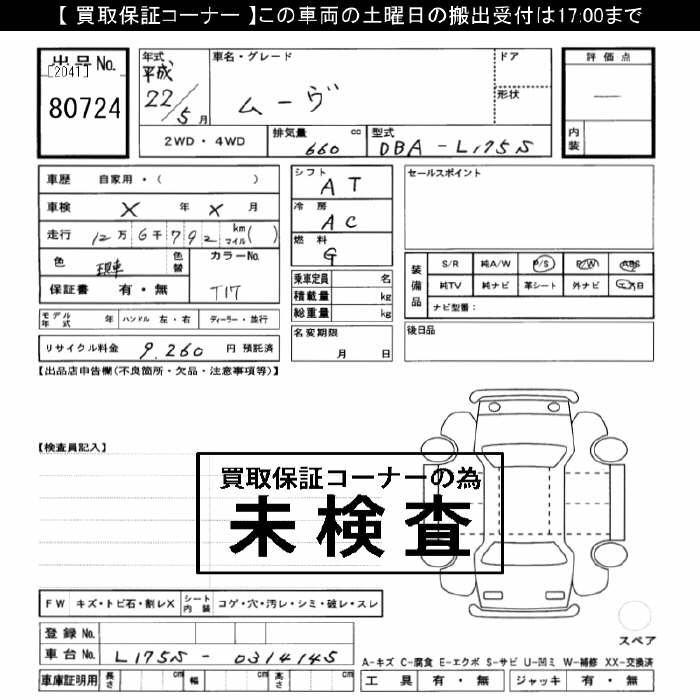 【 買取保証コーナー 】この車両の土曜日の搬出受付は17:00まで
出品No.
[2041]
80724
年式
平成
22/5 月
車名・グレード
ムーヴ
ドア
形状
評価点
―
内装
2WD・4WD
排気量 cc
660
型式
DBA-L175S
車歴 自家用・( )
車検 X 年 X 月
走行 12万6千792 km マイル( )
色 現車 色替
カラーNo.
T17
保証書 有・無
シフト
AT
冷房
AC
燃料
G
セールスポイント
乗車定員 名
積載量 kg
総重量 kg
装備品
S/R 純A/W P/S P/W ABS
純TV 純ナビ 革シート 外ナビ
ナビ型番:
モデル年式 年 ハンドル 左・右 ディーラー・並行
名変期限
月 日
後日品
リサイクル料金 9,260 円 預託済
【出品店申告欄(不良箇所・欠品・注意事項等)】
【検査員記入】
買取保証コーナーの為
未検査
FW キズ・トビ石・割レX シート内装 コゲ・穴・汚レ・シミ・破レ・スレ
登録No.
車台No. L175S-0314145
スペア
A-キズ C-腐食 E-エクボ S-サビ U-凹ミ W-補修 XX-交換済
車庫証明用 長さ cm 幅 cm 高さ cm
工具 有・無 ジャッキ 有・無